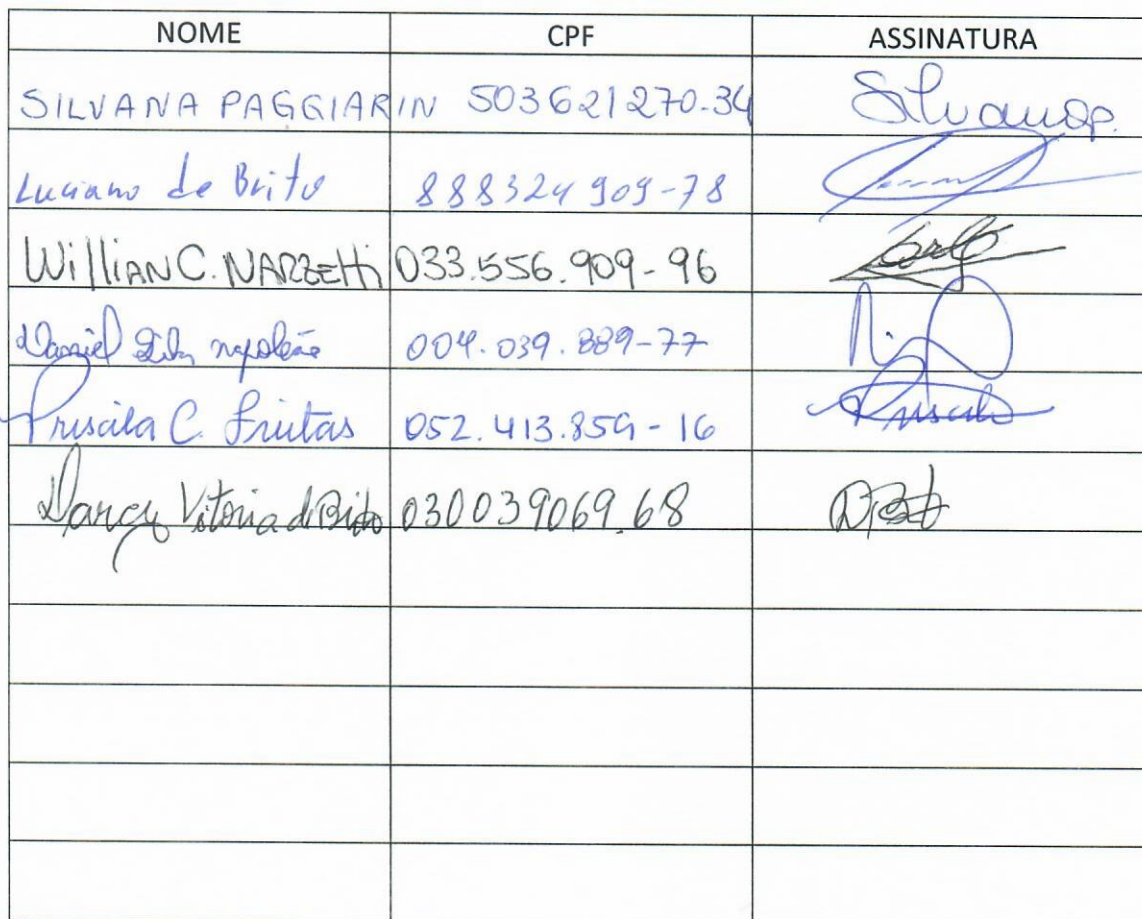 NOME CPF ASSINATURA
SILVANA PAGGIARIN 503621270-34 Silvanap.
Luciano de Brito 888324909-78
Willian C. NARZETTi 033.556.909-96
Daniel napoleão 004.039.889-77
Priscila C. Freitas 052.413.859-16 Priscila
Darcy Vitoria de Brito 030039069.68